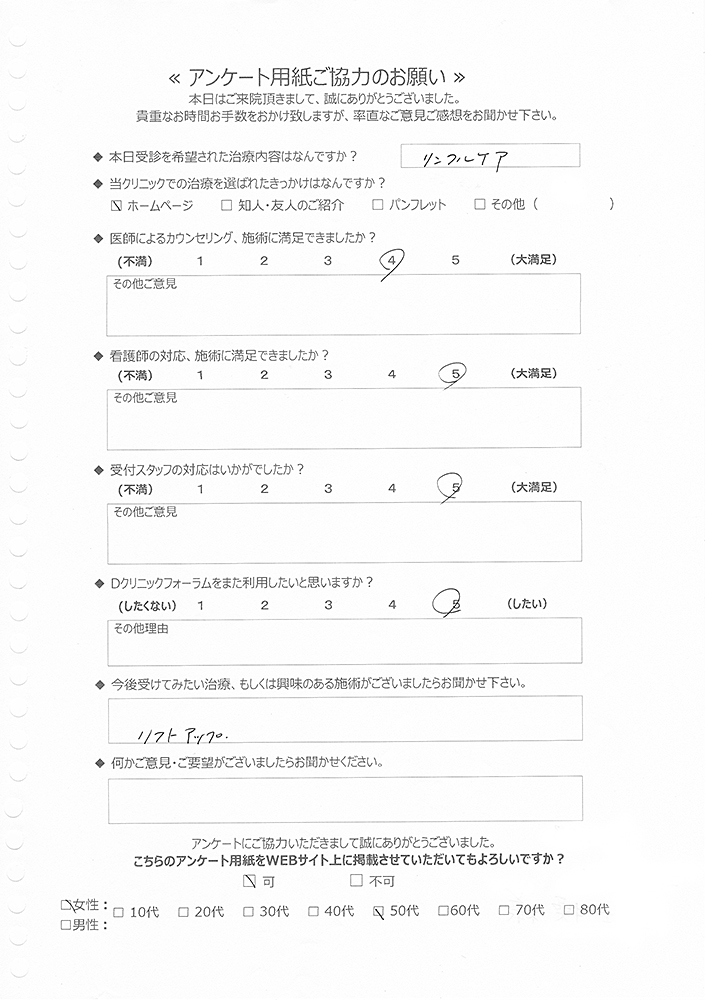 ≪ アンケート用紙ご協力のお願い ≫
本日はご来院頂きまして、誠にありがとうございました。
貴重なお時間お手数をおかけ致しますが、率直なご意見ご感想をお聞かせ下さい。
◆ 本日受診を希望された治療内容はなんですか？ リンクルケア
◆ 当クリニックでの治療を選ばれたきっかけはなんですか？
☑ ホームページ □ 知人・友人のご紹介 □ パンフレット □ その他（ ）
◆ 医師によるカウンセリング、施術に満足できましたか？
(不満) 1 2 3 4 5 (大満足)
その他ご意見
◆ 看護師の対応、施術に満足できましたか？
(不満) 1 2 3 4 5 (大満足)
その他ご意見
◆ 受付スタッフの対応はいかがでしたか？
(不満) 1 2 3 4 5 (大満足)
その他ご意見
◆ Dクリニックフォーラムをまた利用したいと思いますか？
(したくない) 1 2 3 4 5 (したい)
その他理由
◆ 今後受けてみたい治療、もしくは興味のある施術がございましたらお聞かせ下さい。
リフトアップ.
◆ 何かご意見・ご要望がございましたらお聞かせください。
アンケートにご協力いただきまして誠にありがとうございました。
こちらのアンケート用紙をWEBサイト上に掲載させていただいてもよろしいですか？
☑ 可 □ 不可
☑女性： □ 10代 □ 20代 □ 30代 □ 40代 ☑ 50代 □60代 □ 70代 □ 80代
□男性：